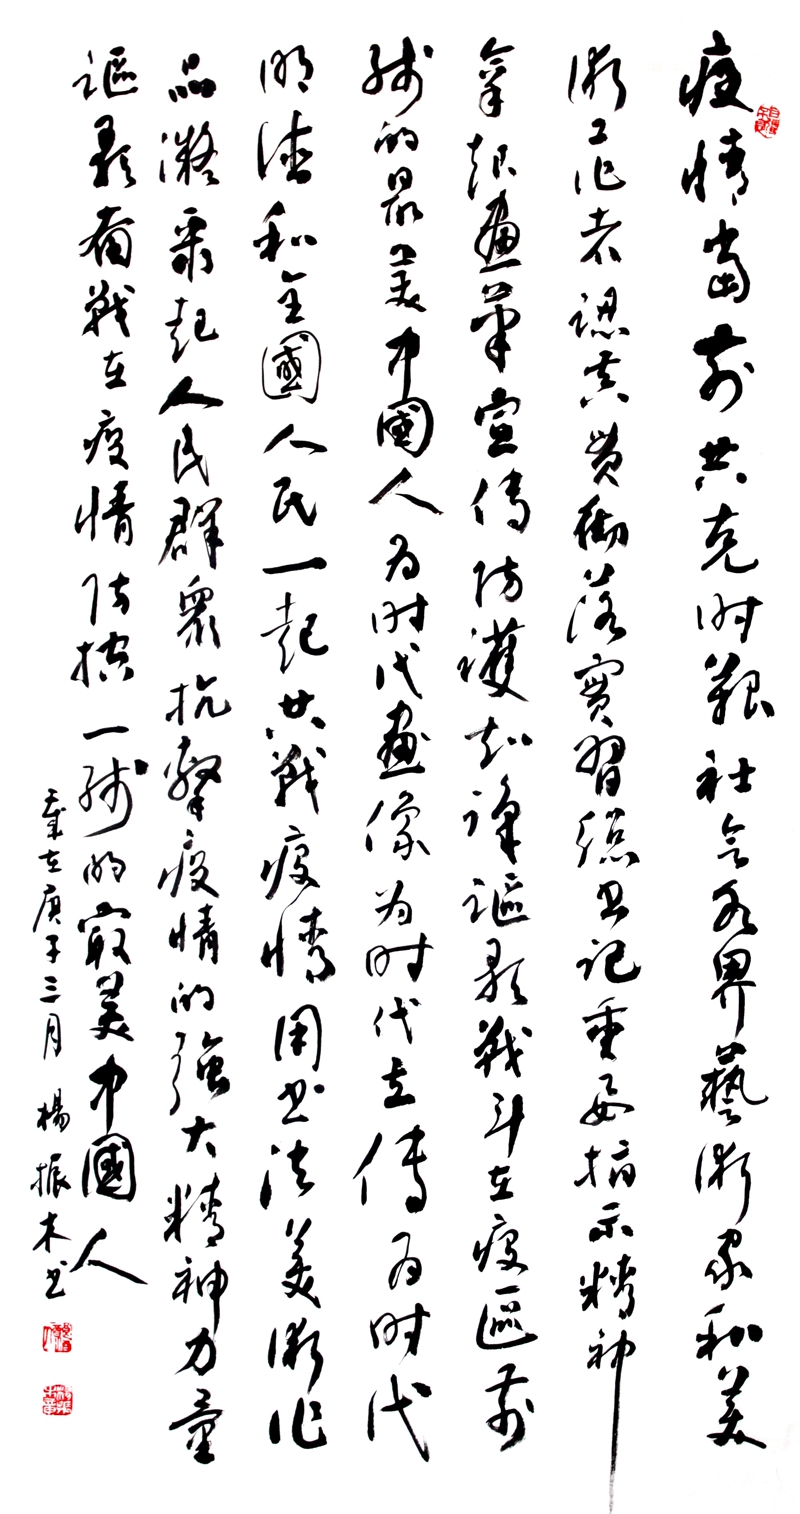 疫情當前共克时艱社会各界藝術家和美
術工作者認真贯彻落實習總书记重要指示精神
拿起畫筆宣传防護知識謳歌戰斗在疫區前
线的最美中國人为时代畫像为时代立傳为时代
明德和全國人民一起共戰疫情用书法美術作
品凝聚起人民群眾抗擊疫情的強大精神力量
謳歌奋戰在疫情防控一线的最美中國人
歲在庚子三月楊振木书